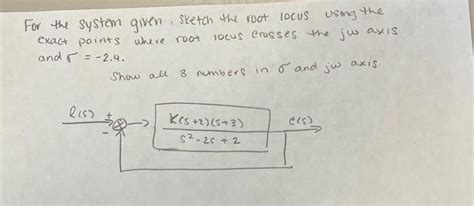 For the system given, sketch the root locus using the
exact points where root locus crosses the jω axis
and σ = -2.4.
Show all 3 numbers in σ and jω axis
R(s) + C(s)
-
K(s+2)(s+3)
s² - 2s + 2